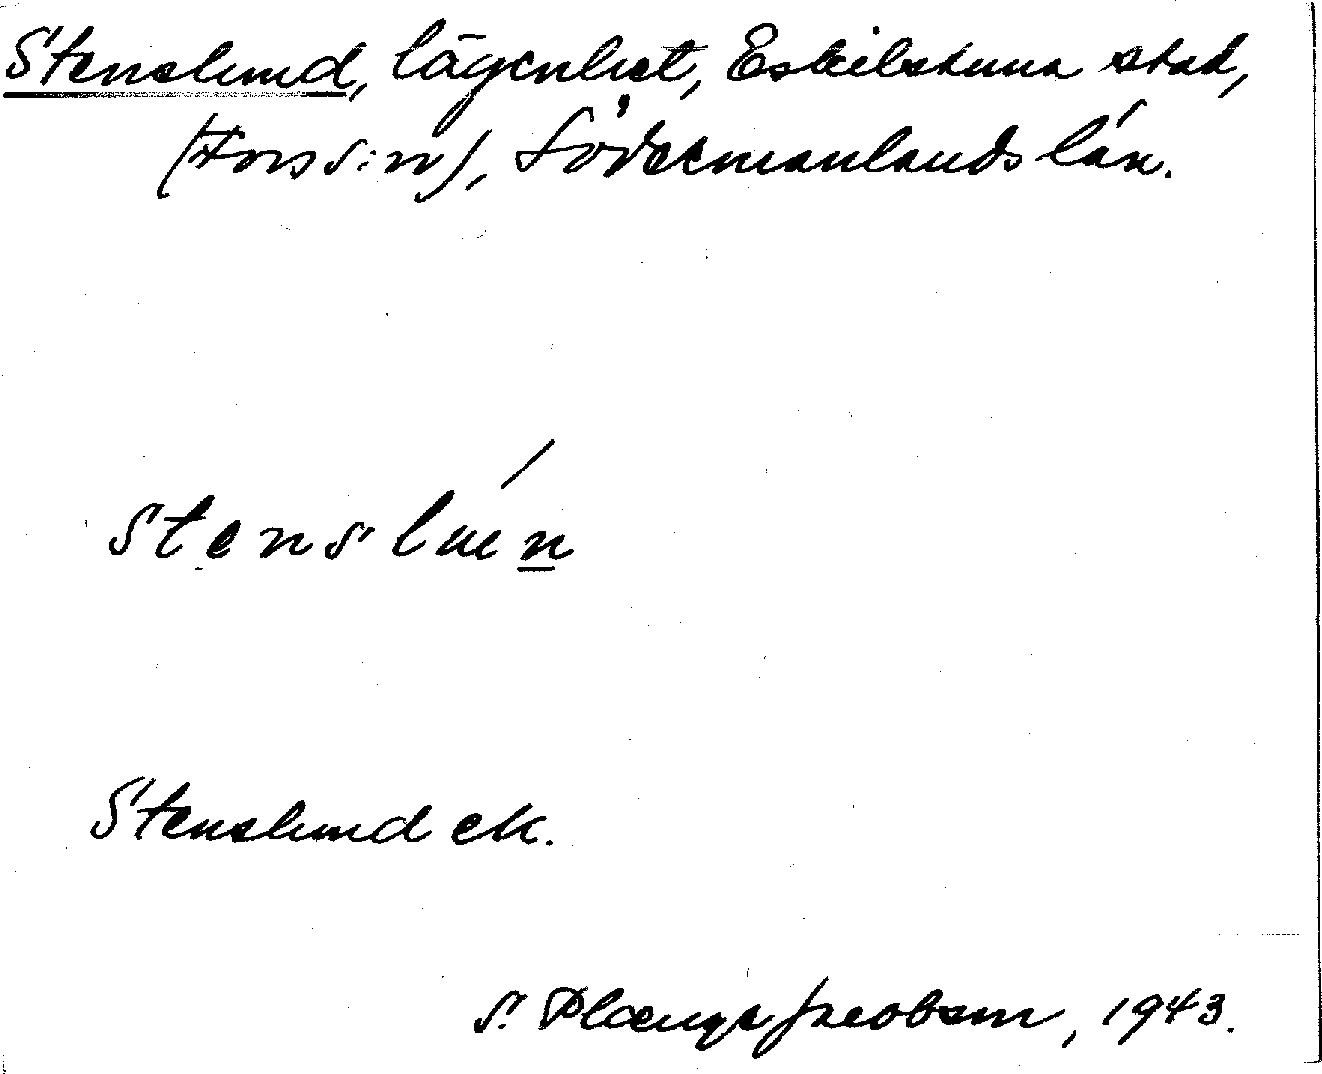 Stenslund, lägenhet, Eskilstuna stad,
(Fors s:n), Södermanlands län.
Stensluen
Stenslund ek.
S. Plænge Jacobson, 1943.